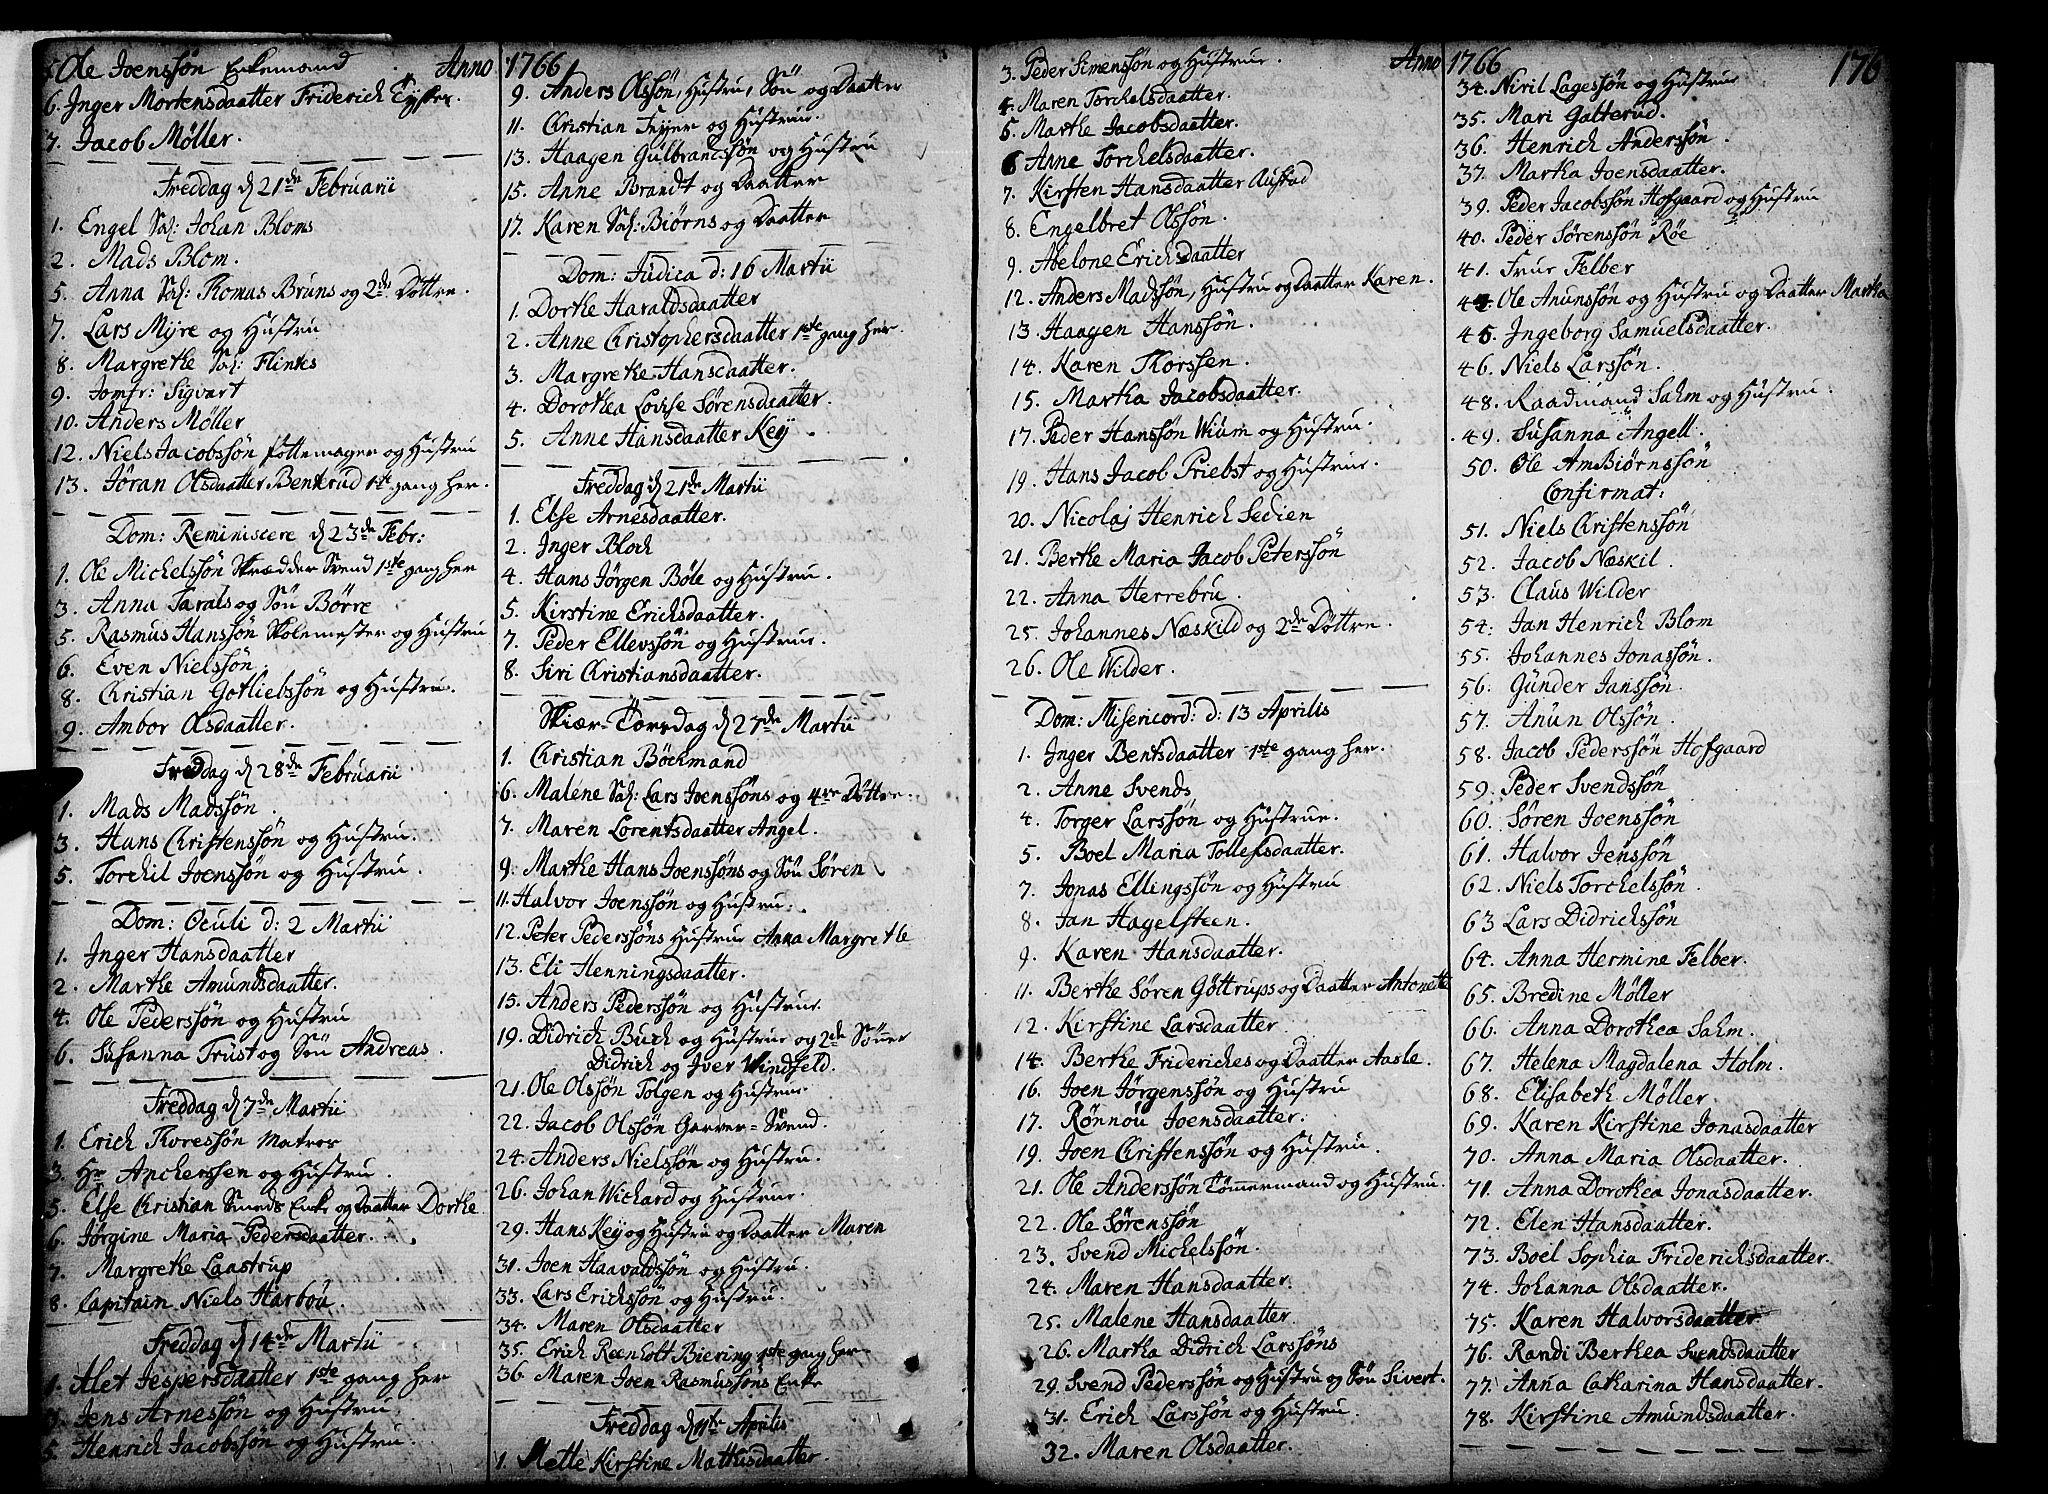 5. Ole Joenssön Enkemand Anno
6. Inger Mortensdaatter Friderich
7. Jacob Møller.
Freddag d 21de Februarii
1. Engel Sal: Johan Bloms
2. Mads Blom.
5. Anna Sal: Thomas Bruns og 2de Döttre.
7. Lars Myre og Hustru
8. Margrethe Sal: Flintes
9. Jomfr: Sigvart
10. Anders Møller
12. Niels Jacobssön Pottemager og Hustru
13. Jöran Olsdaatter Benterud 1ste gang her.
Dom: Reminiscere d 23de Febr:
1. Ole Michelssön Skrædder Svend 1ste gang her
3. Anna Tarals og Sön Börre
5. Rasmus Hanssön Skolemester og Hustru
6. Even Nielssön.
8. Christian Gotliebssön og Hustru.
9. Ambor Olsdaatter.
Freddag d 28de Februarii
1. Mads Madssön.
3. Hans Christenssön og Hustru.
5. Torchil Joenssön og Hustru.
Dom: Oculi d: 2 Martii
1. Inger Hansdaatter
2. Marthe Amundsdaatter.
4. Ole Pederssön og Hustru
6. Susanna Trust og Sön Andreas.
Freddag d 7de Martii
1. Erich Thoressön Matros
3. Hr Anchersen og Hustru.
5. Else Christian Smeds Enke og Daatter Dorthe
6. Jørgine Maria Pedersdaatter.
7. Margrethe Laastrup
8. Capitain Niels Harbou.
Freddag d 14de Martii
1. Alet Jespersdaatter 1ste gang her
3. Jens Arnessön og Hustru.
5. Henrich Jacobssön og Hustru.
1766
9. Anders Olssön, Hustru, Sön og Daatter
11. Christian Feyer og Hustru.
13. Haagen Gulbrandssön og Hustru
15. Anne Brandt og Daatter
17. Karen Sal: Biørns og Daatter
Dom: Judica d: 16 Martii
1. Dorthe Haraldsdaatter
2. Anne Christophersdaatter 1ste gang her.
3. Margrethe Hansdaatter.
4. Dorothea Lovise Sørensdaatter.
5. Anne Hansdaatter Key
Freddag d 21de Martii
1. Else Arnesdaatter.
2. Inger Bloch
4. Hans Jörgen Böle og Hustru.
5. Kirstine Erichsdaatter.
7. Peder Ellevssön og Hustru.
8. Siri Christiansdaatter.
Skiær-Torsdag d 27de Martii
1. Christian Böchmand
6. Malene Sal: Lars Joenssöns og 4re Döttre.
7. Maren Lorentsdaatter Angel.
9. Marthe Hans Joenssöns og Sön Sören
11. Halvor Joenssön og Hustru.
12. Peter Pederssöns Hustrue Anna Margrethe
13. Eli Henningsdaatter.
15. Anders Pederssön og Hustrue
19. Didrich Buch og Hustrue og 2de Sönner
Didrich og Iver Windfeld.
21. Ole Olssön Tolgen og Hustrue
22. Jacob Olssön Garver-Svend.
24. Anders Nielssön og Hustru.
26. Johan Wichard og Hustrue.
29. Hans Key og Hustru og Daatter Maren
31. Joen Haavaldssön og Hustru.
33. Lars Erichssön og Hustru.
34. Maren Olsdaatter
35. Erich Reenholt Biering 1ste gang her
36. Maren Joen Rasmussöns Enke
Freddag d 11te Aprilis
1. Mette Kirstine Mathisdaatter.
3. Peder Simenssön og Hustrue. Anno
4. Maren Torchelsdaatter.
5. Marthe Jacobsdaatter.
6 Anne Torchelsdaatter.
7. Kirsten Hansdaatter Austad
8. Engelbret Olssön.
9. Abelone Erichsdaatter
12. Anders Madssön, Hustru og Daatter Karen.
13. Haagen Hanssön.
14. Karen Thorssen.
15. Martha Jacobsdaatter.
17. Peder Hanssön Wium og Hustru.
19. Hans Jacob Priebst og Hustrue.
20. Nicolaj Henrich Sedien
21. Berthe Maria Jacob Peterssön
22. Anna Herrebru.
25. Johannes Næskild og 2de Döttre.
26. Ole Wilder.
Dom: Misericord: d: 13 Aprilis
1. Inger Bentsdaatter 1ste gang her.
2. Anne Svends
4. Torger Larssön og Hustrue.
5. Boel Maria Tollefsdaatter.
7. Jonas Ellingssön og Hustru
8. Jan Hagelsteen.
9. Karen Hansdaatter.
11. Berthe Sören Göttrups og Daatter Antonette
12. Kirstine Larsdaatter
14. Berthe Friderichs og Daatter Aasle.
16. Joen Jörgenssön og Hustru
17. Rönnou Joensdaatter.
19. Joen Christenssön og Hustru.
21. Ole Anderssön Tömmermand og Hustru.
22. Ole Sörenssön
23. Svend Michelssön.
24. Maren Hansdaatter.
25. Malene Hansdaatter.
26. Martha Didrich Larssöns
29. Svend Pederssön og Hustru og Sön Sivert.
31. Erich Larssön og Hustru.
32. Maren Olsdaatter.
1766 176
34. Niril Lagessön og Hustrue
35. Mari Gatterud.
36. Henrich Anderssön
37. Martha Joensdaatter.
39. Peder Jacobssön Hofgaard og Hustru
40. Peder Sörenssön Röe
41. Frue Felber
44. Ole Anunssön og Hustru og Daatter Martha
45. Ingeborg Samuelsdaatter.
46. Niels Larssön.
48. Raadmand Sahm og Hustru.
49. Susanna Angell.
50. Ole AmBiörnssön
Confirmat:
51. Niels Christenssön
52. Jacob Næskil.
53. Claus Wilder
54: Jan Henrich Blom
55. Johannes Jonassön.
56. Gunder Janssön.
57. Anun Olssön.
58. Jacob Pederssön Hofgaard
59. Peder Svendssön
60. Sören Joenssön
61. Halvor Jenssön
62. Niels Torchelssön.
63 Lars Didrichssön
64. Anna Hermine Felber.
65. Bredine Møller
66. Anna Dorothea Sahm.
67. Helena Magdalena Holm.
68. Elisabeth Møller.
69. Karen Kirstine Jonasdaatter
70. Anna Maria Olsdaatter.
71. Anna Dorothea Jonasdaatter.
72. Elen Hansdaatter.
73. Boel Sophia Friderichsdaatter.
74. Johanna Olsdaatter.
75. Karen Halvorsdaatter.
76. Randi Berthea Svendsdaatter
77. Anna Catharina Hansdaatter.
78. Kirstine Amundsdaatter.